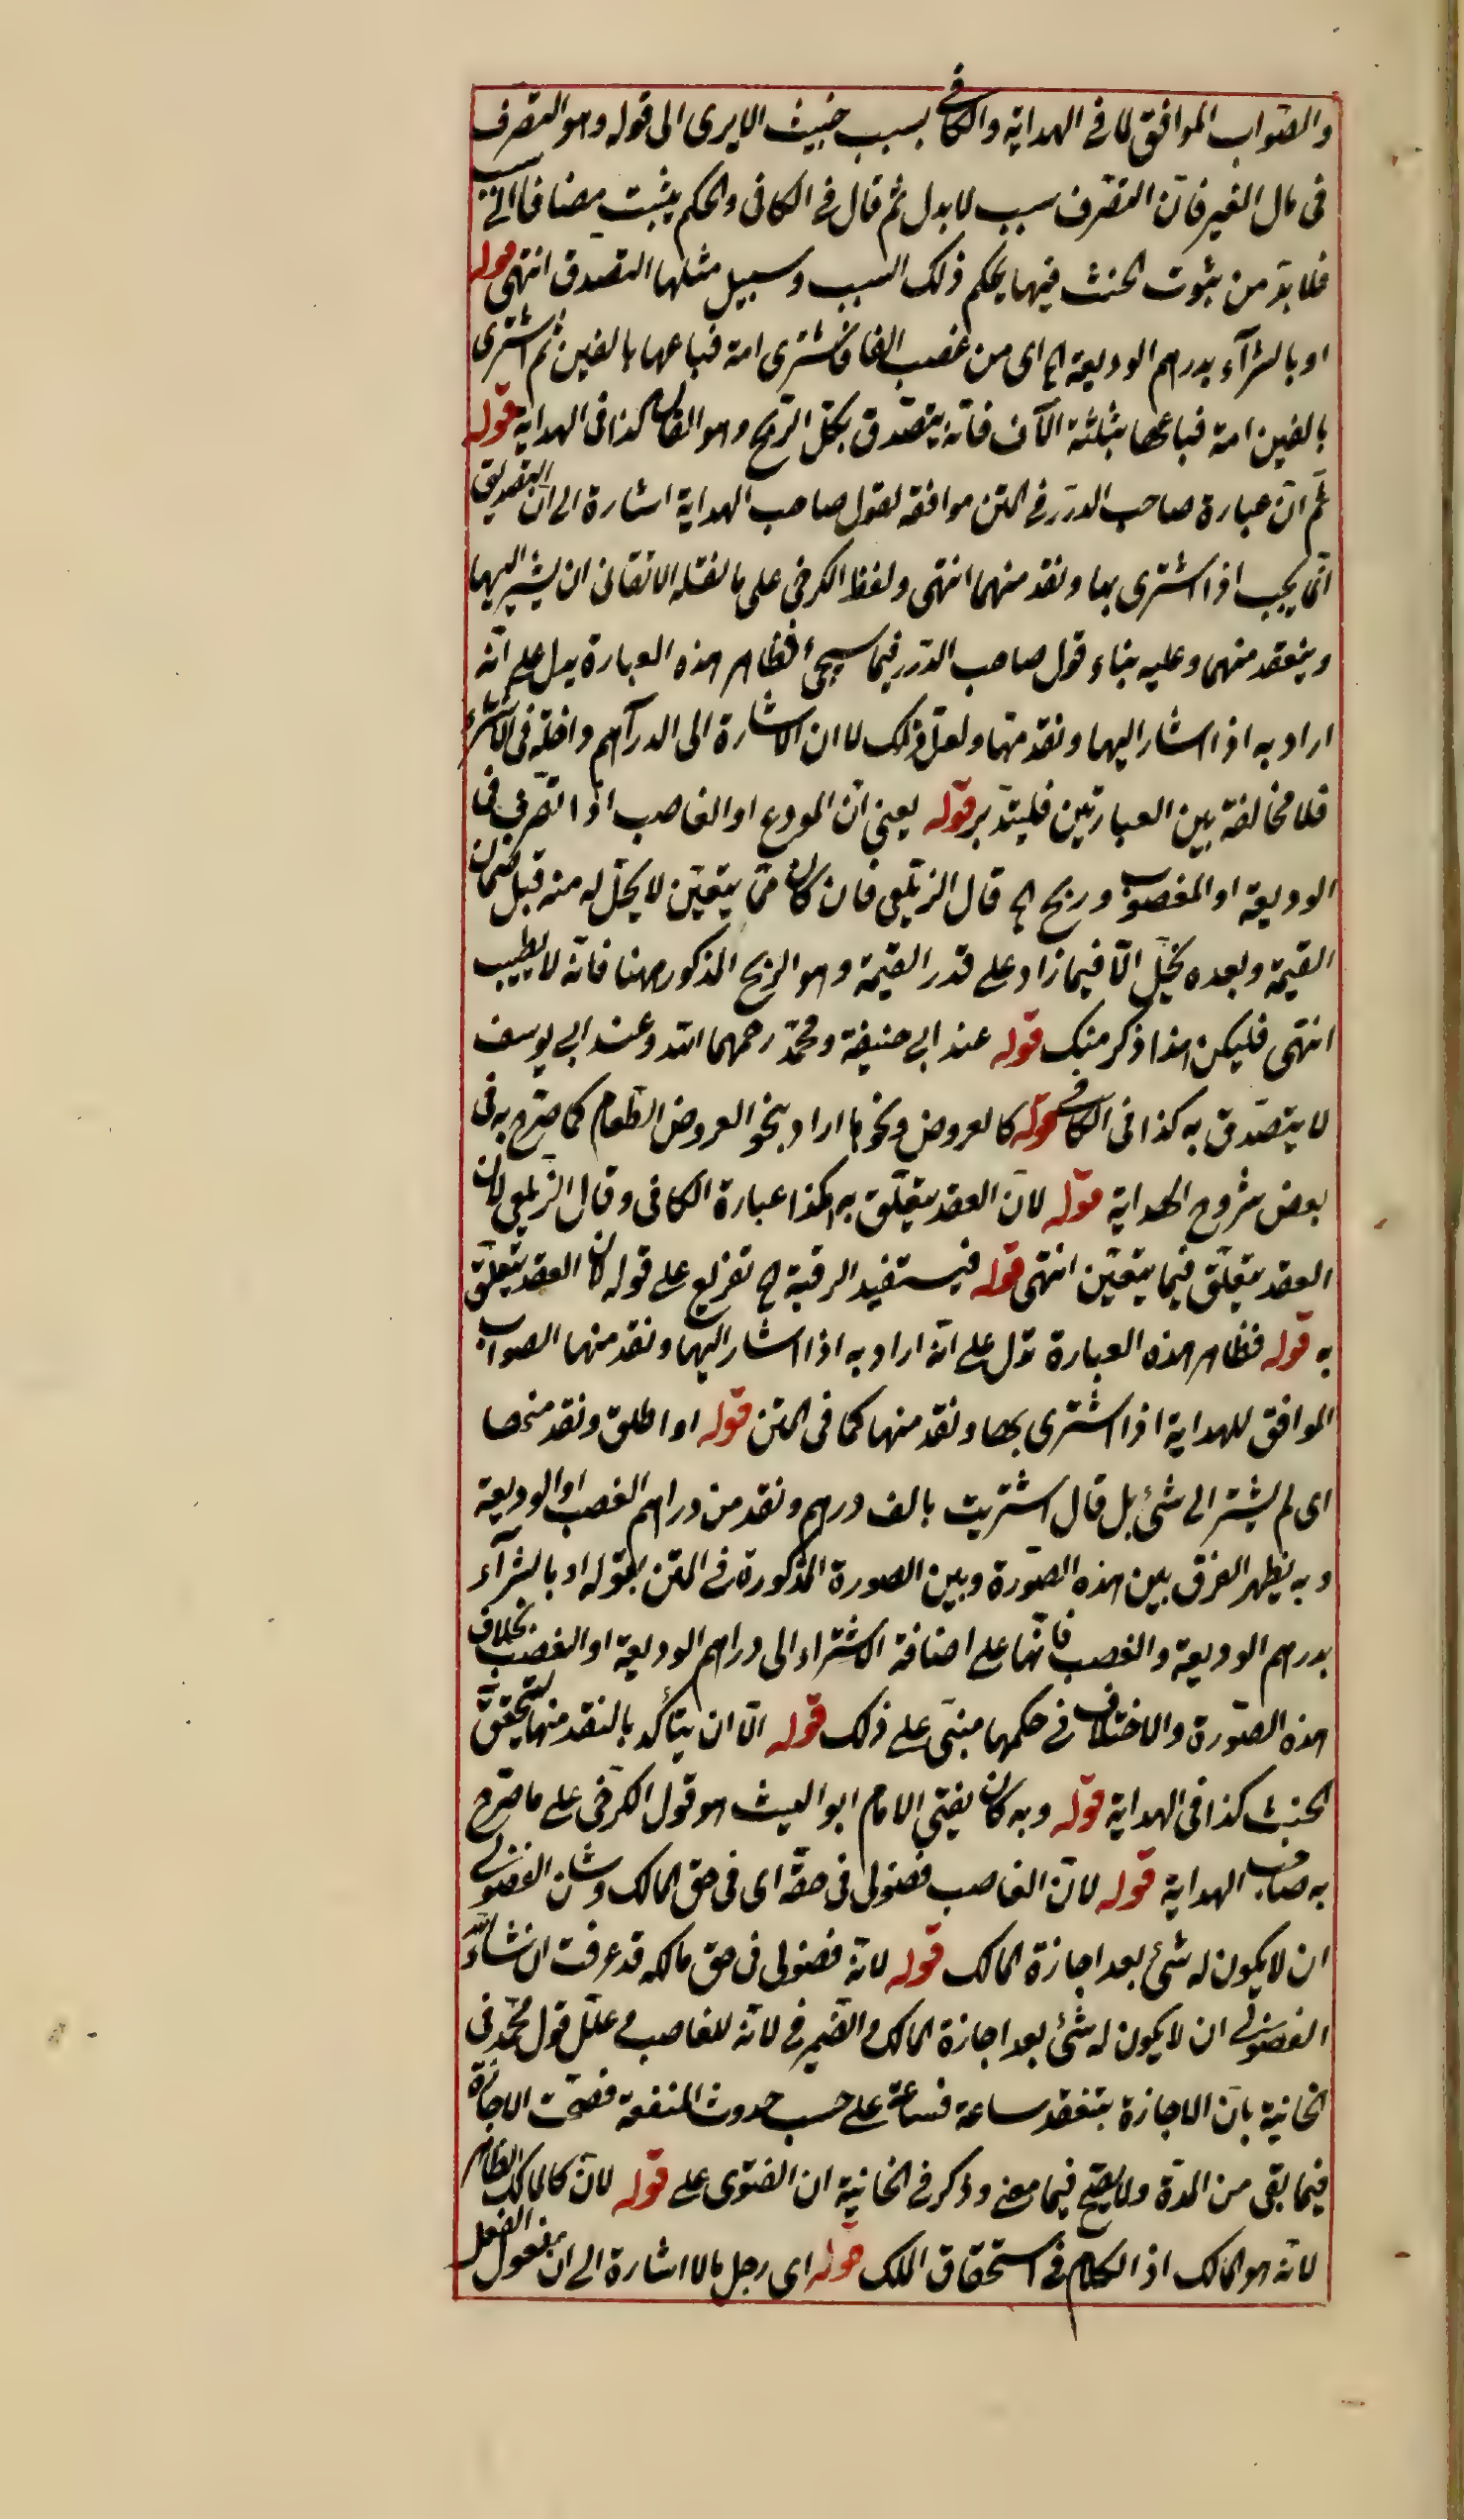 والصّواب الموافق لما فى الهداية والكافى بسبب خبيث الا يرى الى قوله وهو التصرف
فى مال الغير فانّ التصّرف سبب لا بدل ثم قال فى الكافى والحكم يثبت مضافا الى السبب
فلا بدّ من ثبوت الخبث فيهما بحكم ذلك السبب وسبيل مثلها التصدق انتهى قوله
او بالشرآء بدرهم الوديعة الخ اى من غصب الفا فاشترى امة فباعها بالفين ثم اشترى
بالفين امة فباعها بثلثة الآف فانّه يتصّدق بكل الرّبح وهو الفان كذا فى الهداية قوله
ثم انّ عبارة صاحب الدرر فى المتن موافقة لقول صاحب الهداية اشارة الى ان التصديق
انّما يجب اذا اشترى بها ونقد منهما انتهى ولفظ الكرخى على ما نقله الاتقانى ان يشير اليهما
وينقد منهما وعليه بناء قول صاحب الدّرر فيما سيجىء فظاهر هذه العبارة يدل على انّه
اراد به اذا اشار اليهما ونقد منها ولعلّ ذلك لما ان الاشارة الى الدرآهم داخلة فى الاشتراء
فلا مخالفة بين العبارتين فليتدّبر قوله يعنى انّ المودع او الغاصب اذا تصّرف فى
الوديعة او المغصوب وربح الخ قال الزيّلعى فان كان ممّا يتعيّن لا يحّل له منه قبل ضمان
القيمة وبعده يحّل الّا فيما زاد على قدر القيمة وهو الربح المذكور ههنا فانّه لا يطيب
انتهى فليكن هذا ذكر منك قوله عند ابى حنيفة ومحمّد رحمهما الله وعند ابى يوسف
لا يتصّدق به كذا فى الكافى قوله كالعروض ونحوها اراد بنحو العروض الطّعام كما صّرح به فى
بعض شروح الهداية قوله لانّ العقد يتعلّق به هكذا عبارة الكافى وقال الزيلعى لان
العقد يتعلّق فيما يتعيّن انتهى قوله فيستفيد الرقبة الخ تفريع على قوله لان العقد يتعلّق
به قوله فظاهر هذه العبارة تدل على انّه اراد به اذا اشار اليهما ونقد منهما الصواب
الموافق للهداية اذا اشترى بها ونقد منها كما فى المتن قوله او اطلق ونقد منها
اى لم يشتر الى شىء بل قال اشتريت بالف درهم ونقد من دراهم الغصب او الوديعة
وبه يظهر الفرق بين هذه الصّورة وبين الصورة المذكورة فى المتن بقوله او بالشرآء
بدرهم الوديعة والغصب فانّها على اضافة الاشتراء الى دراهم الوديعة او الغصب بخلاف
هذه الصّورة والاختلاف فى حكمهما مبنىّ على ذلك قوله الّا ان يتأكد بالنقد منها ليتحقق به
الخبث كذا فى الهداية قوله وبه كان يفتى الامام ابو الليث هو قول الكرخى على ما صّرح
به صاحب الهداية قوله لانّ الغاصب فضولى فى حقّه اى فى حق المالك وشان الفضولى
ان لا يكون له شىء بعد اجازة المالك قوله لانّه فضولى فى حق مالكه قد عرفت ان شان
الفضولى ان لا يكون له شىء بعد اجازة المالك والضمير فى لانّه للغاصب وعلّل قول محمّد فى
الخانية بانّ الاجازة تنعقد ساعة فساعة على حسب حدوث المنفعة فصحّت الاجازة
فيما بقى من المدّة ولا يصّح فيما مضى وذكر فى الخانية ان الفتوى على قوله لانّ كالمالك الظاهر
لانّه هو المالك اذ الكلام فى استحقاق الملك قوله اى رجل مالا اشارة الى ان مفعول الفعل